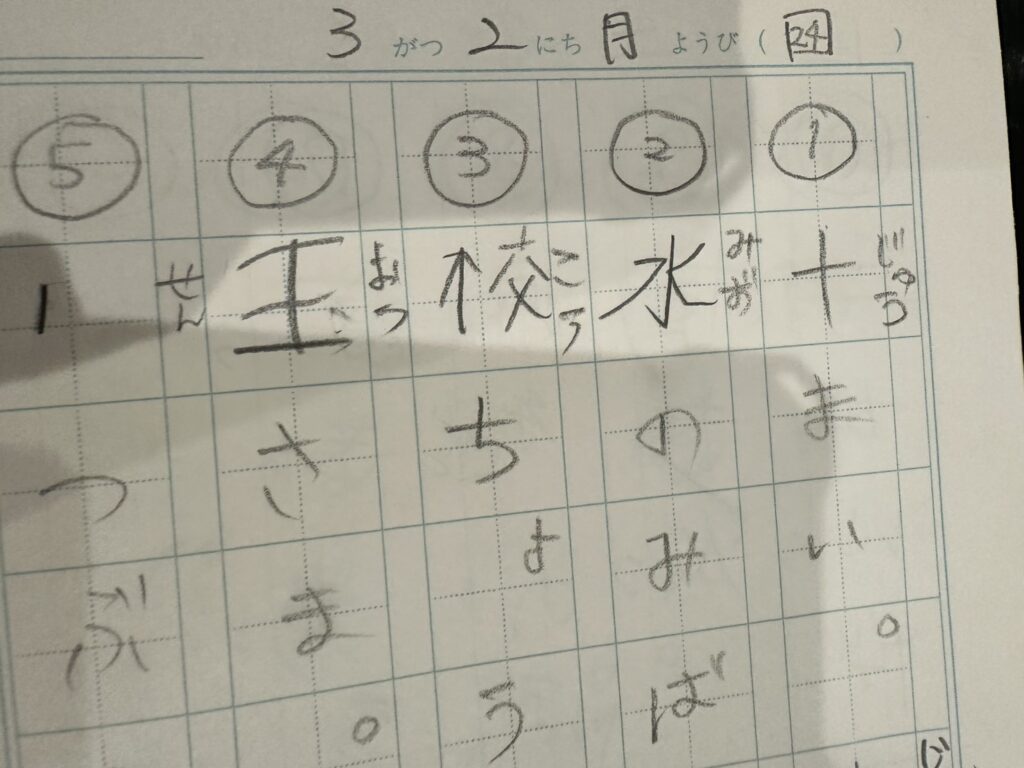 3がつ2にち月ようび(24)
①
十まい。
じゅう
②
水のみば
みず
③
校ちょう
こう
④
王さま。
おう
⑤
つぶ
せん
じ